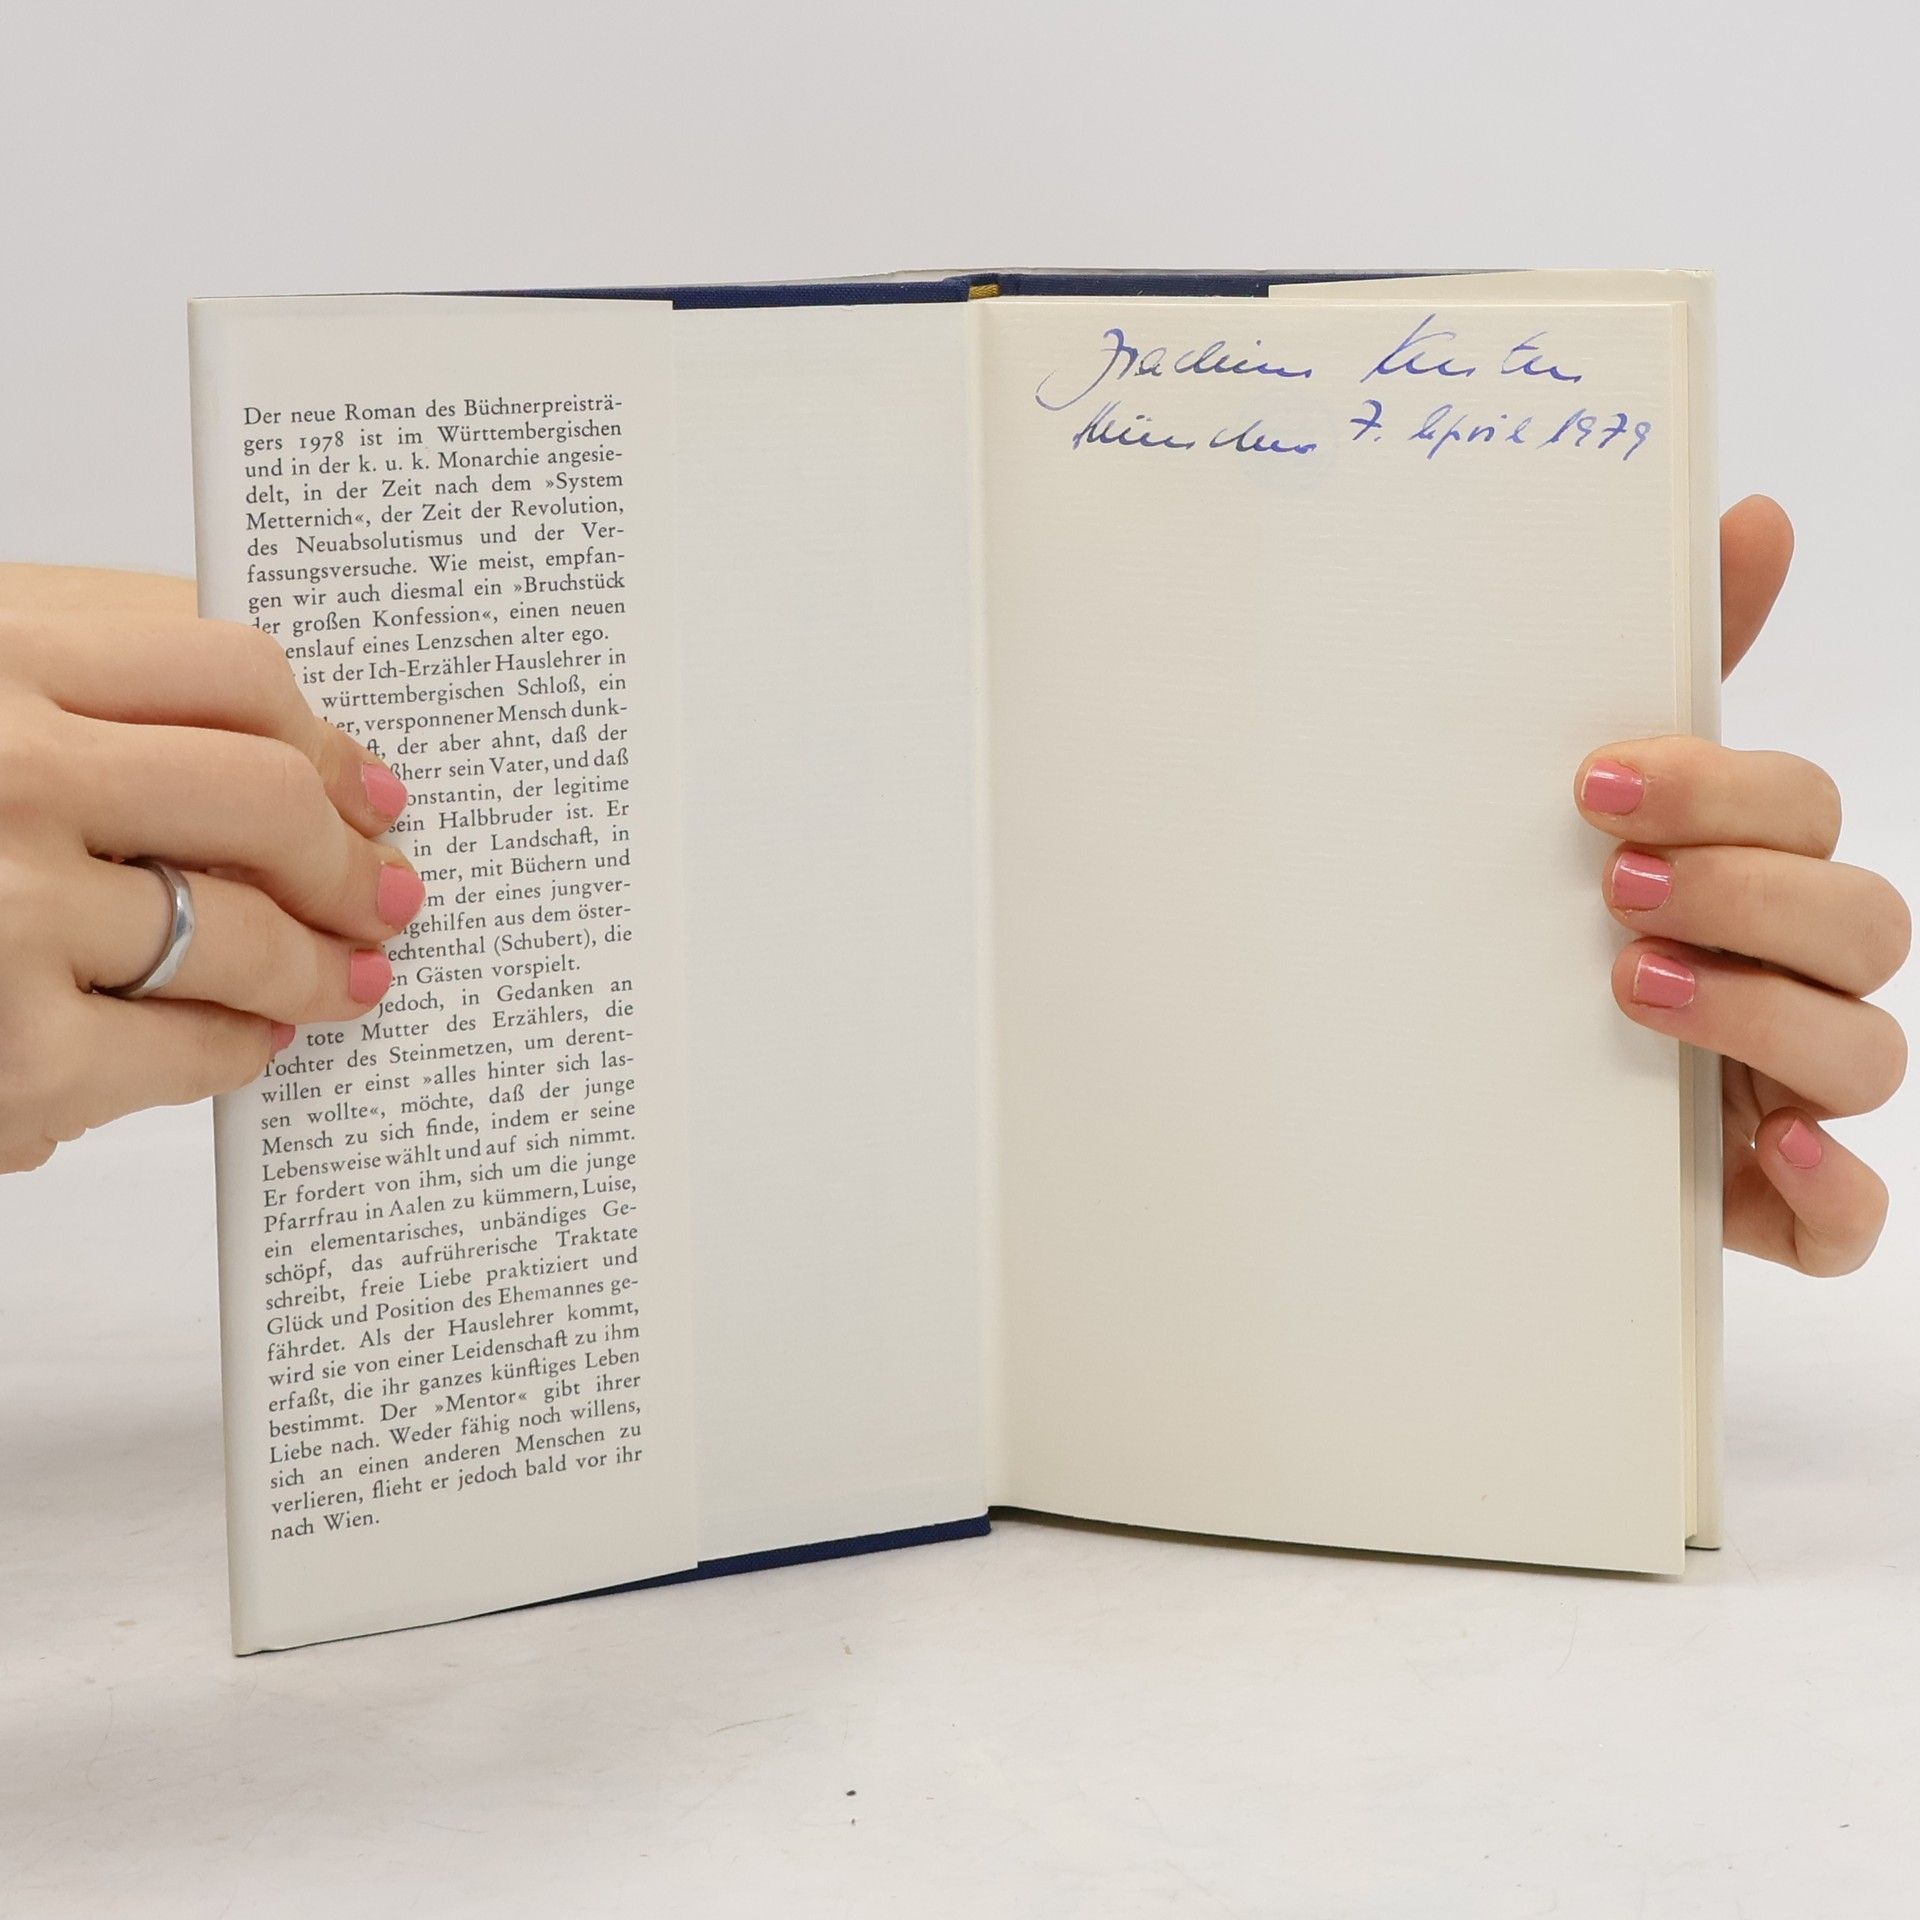 Der neue Roman des Büchnerpreisträ-
gers 1978 ist im Württembergischen
und in der k. u. k. Monarchie angesie-
delt, in der Zeit nach dem »System
Metternich«, der Zeit der Revolution,
des Neuabsolutismus und der Ver-
fassungsversuche. Wie meist, empfan-
gen wir auch diesmal ein »Bruchstück
der großen Konfession«, einen neuen
enslauf eines Lenzschen alter ego.
ist der Ich-Erzähler Hauslehrer in
württembergischen Schloß, ein
er, versponnener Mensch dunk-
ft, der aber ahnt, daß der
ßherr sein Vater, und daß
onstantin, der legitime
sein Halbbruder ist. Er
in der Landschaft, in
mer, mit Büchern und
em der eines jungver-
gehilfen aus dem öster-
echtenthal (Schubert), die
en Gästen vorspielt.
jedoch, in Gedanken an
tote Mutter des Erzählers, die
Tochter des Steinmetzen, um derent-
willen er einst »alles hinter sich las-
sen wollte«, möchte, daß der junge
Mensch zu sich finde, indem er seine
Lebensweise wählt und auf sich nimmt.
Er fordert von ihm, sich um die junge
Pfarrfrau in Aalen zu kümmern, Luise,
ein elementarisches, unbändiges Ge-
schöpf, das aufrührerische Traktate
schreibt, freie Liebe praktiziert und
Glück und Position des Ehemannes ge-
fährdet. Als der Hauslehrer kommt,
wird sie von einer Leidenschaft zu ihm
erfaßt, die ihr ganzes künftiges Leben
bestimmt. Der »Mentor« gibt ihrer
Liebe nach. Weder fähig noch willens,
sich an einen anderen Menschen zu
verlieren, flieht er jedoch bald vor ihr
nach Wien.
Joachim Kersten
München 7. April 1979